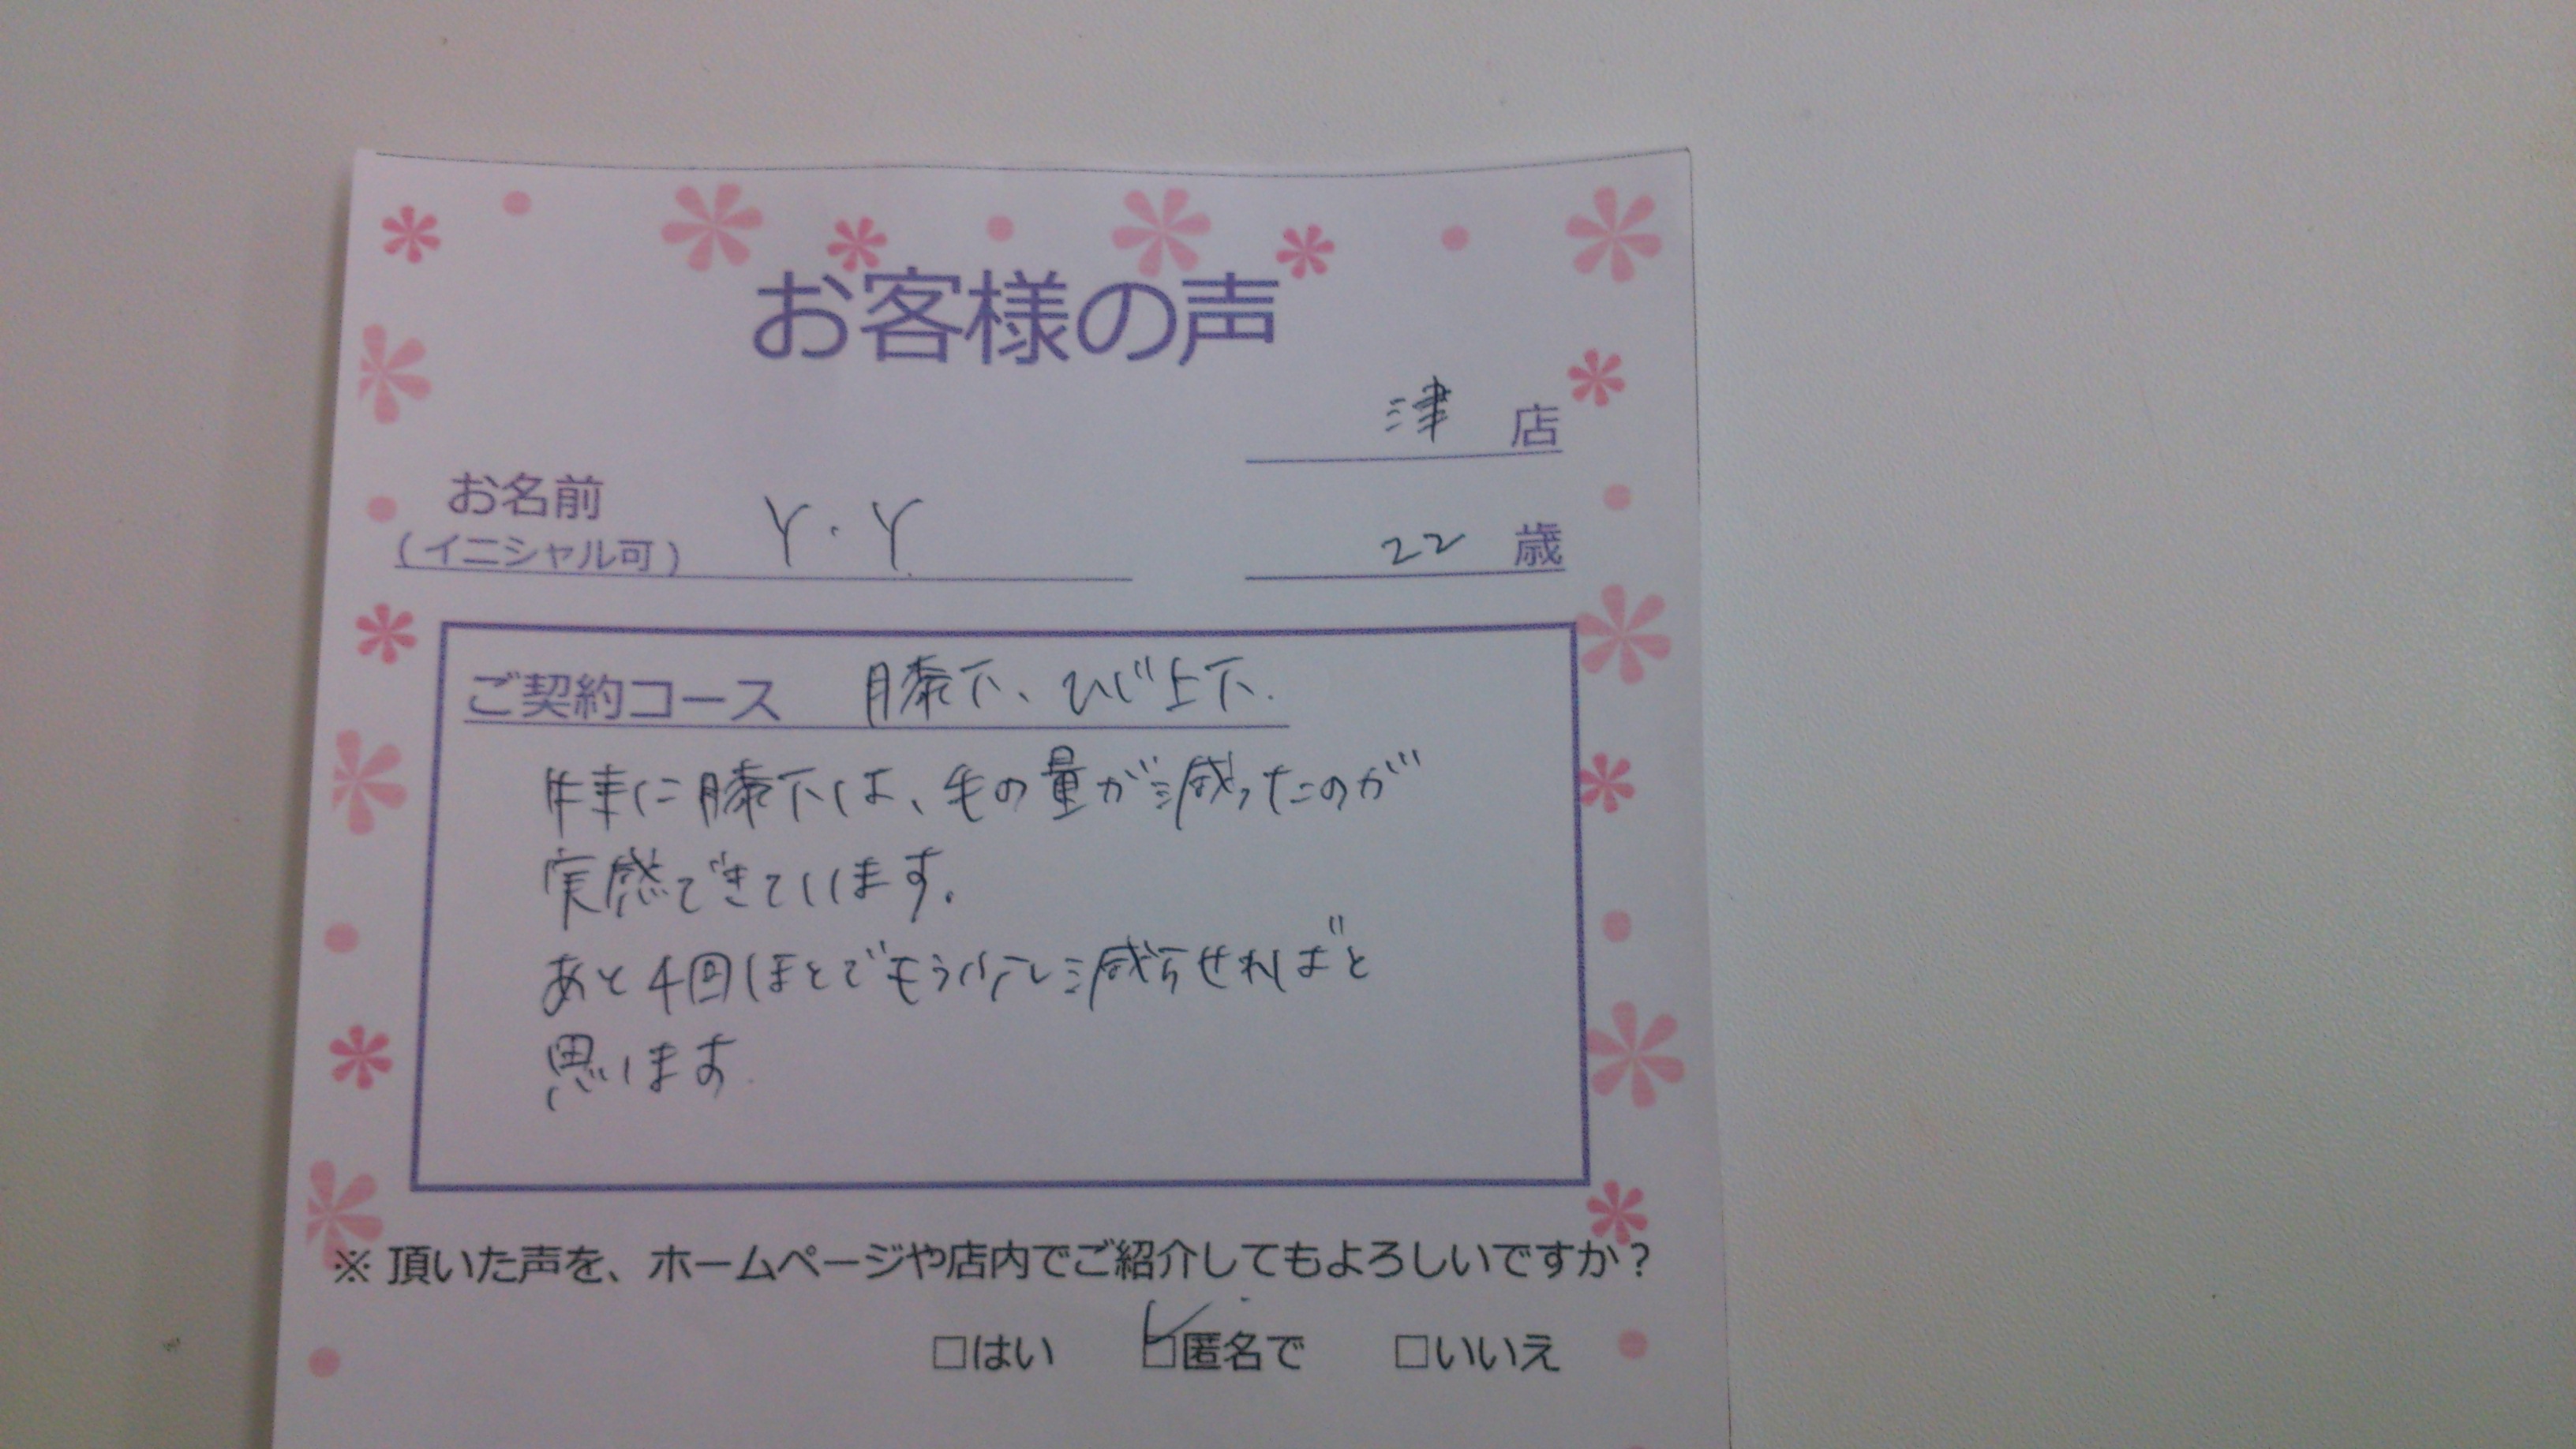 お客様の声
津 店
お名前
(イニシャル可) Y.Y
22 歳
ご契約コース 膝下、ひじ上下.
特に膝下は、毛の量が減ったのが
実感できています。
あと4回ほどでもう少し減らせればと
思います
※ 頂いた声を、ホームページや店内でご紹介してもよろしいですか？
□はい ☑匿名で □いいえ